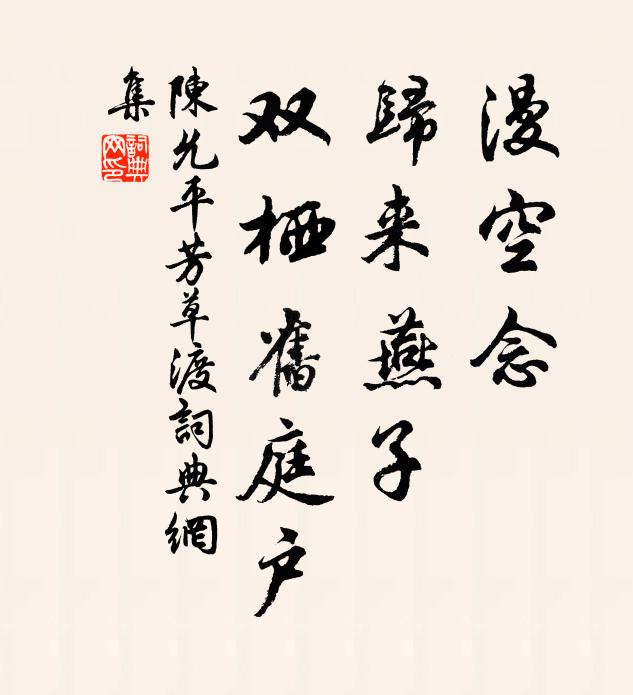 漫空念
歸来燕子
双栖舊庭户
陳允平芳草渡詞典網
集
詞典
网印